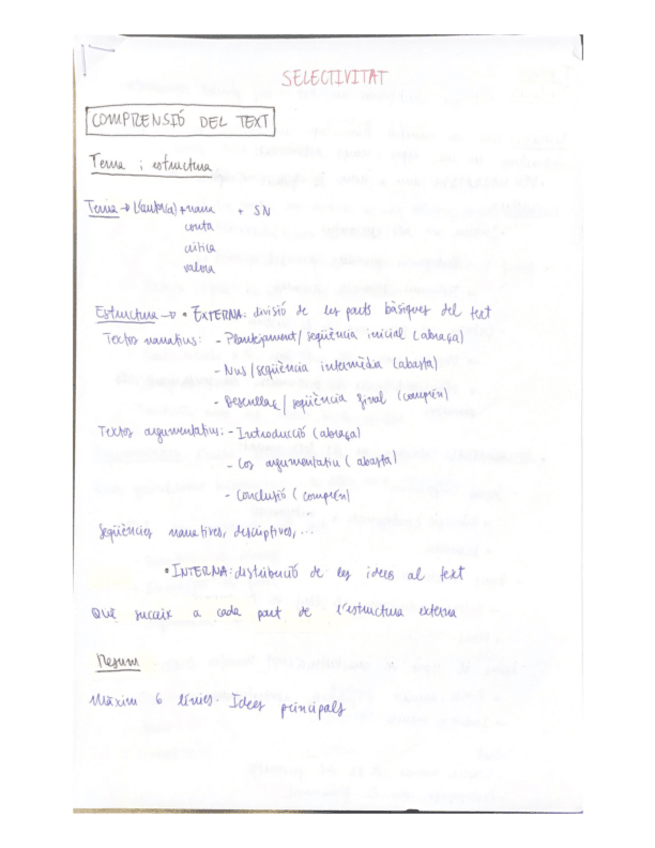 SELECTIVITAT
COMPRENSIÓ DEL TEXT
Tema i estructura
Tema → L'autor(a) + narra + SN
conta
critica
valora
Estructura → • EXTERNA: divisió de les parts bàsiques del text
Textos narratius: - Plantejament / seqüència inicial (abraça)
- Nus / seqüència intermèdia (abasta)
- Desenllaç / seqüència final (comprén)
Textos argumentatius: - Introducció (abraça)
- Cos argumentatiu (abasta)
- Conclusió (comprén)
Seqüències narratives, descriptives, ...
• INTERNA: distribució de les idees al text
Què succeix a cada part de l'estructura externa
Resum
Màxim 6 línies. Idees principals